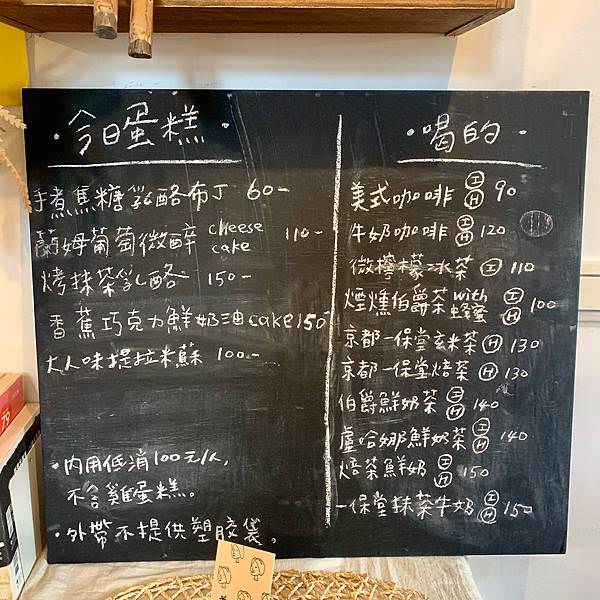 ·今日蛋糕·
手煮焦糖乳酪布丁 60-
蘭姆葡萄微醉 cheese cake 110-
烤抹茶乳酪 150-
香蕉巧克力鮮奶油cake150
大人味提拉米蘇 100-
·內用低消100元/人,
不含雞蛋糕。
·外帶不提供塑胶袋。
·喝的·
美式咖啡 I H 90
牛奶咖啡 I H 120
微檸檬冰茶 I 110
煙燻伯爵茶 with 蜂蜜 I H 100
京都一保堂玄米茶 H 130
京都一保堂焙茶 H 130
伯爵鮮奶茶 I H 140
盧哈娜鮮奶茶 I H 140
焙茶鮮奶 I H 150
一保堂抹茶牛奶 I H 150
79